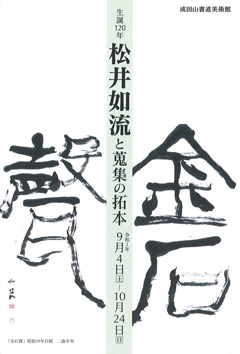 成田山書道美術館
生誕120年
松井如流と蒐集の拓本
令和3年
9月4日(土)―10月24日(日)
金石
聲
「金石聲」昭和59年日展 二曲半双